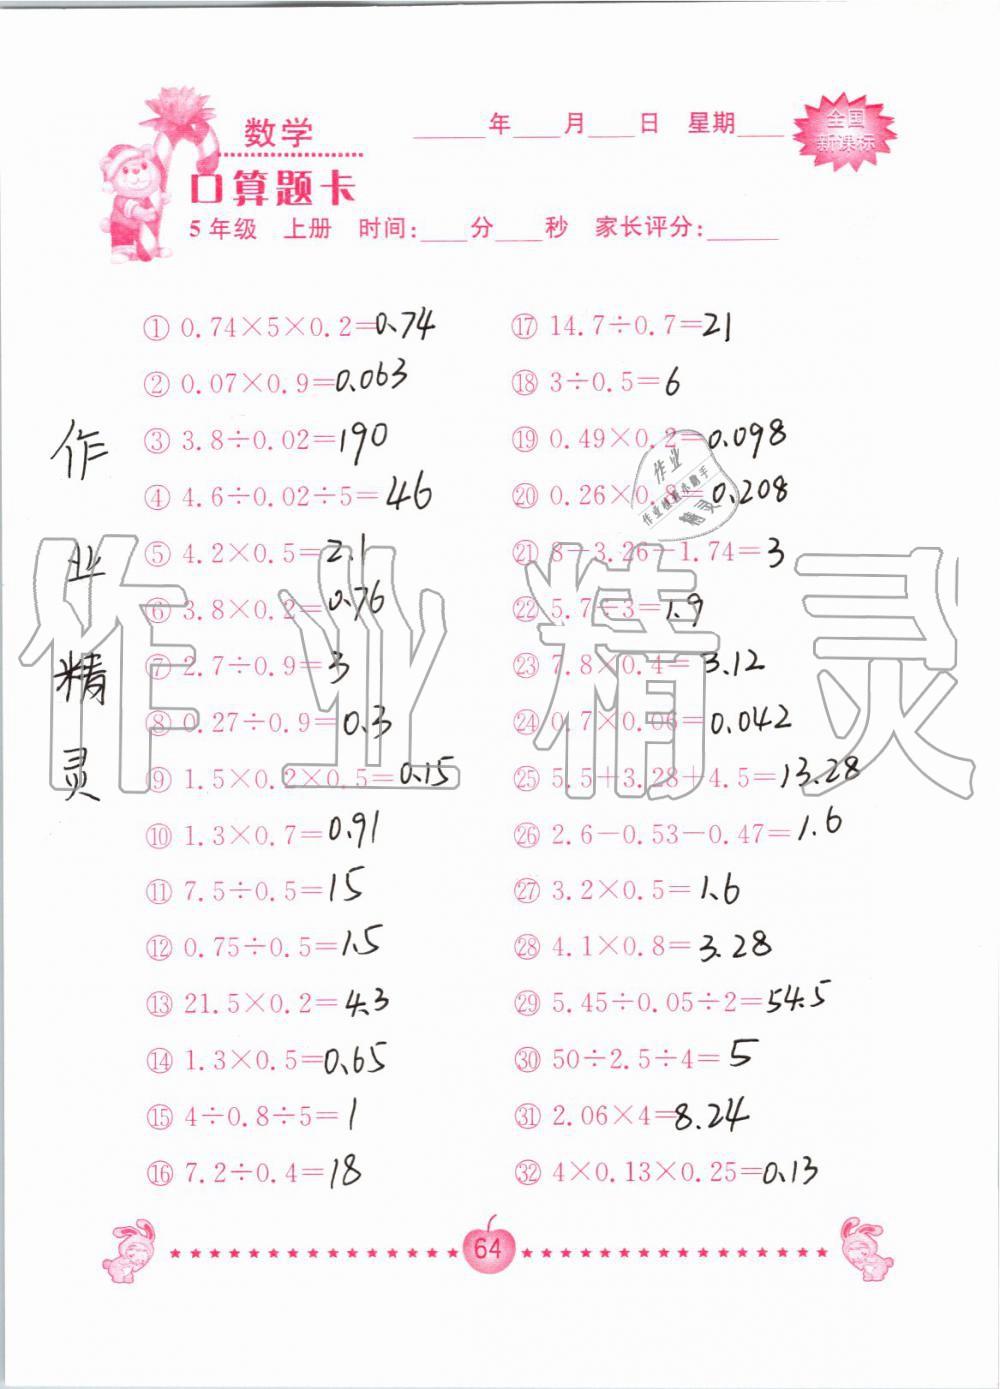 数学
____年____月____日 星期____
全国
新课标
口算题卡
5年级 上册 时间:____分____秒 家长评分:______
① 0.74×5×0.2=0.74
② 0.07×0.9=0.063
③ 3.8÷0.02=190
④ 4.6÷0.02÷5=46
⑤ 4.2×0.5=2.1
⑥ 3.8×0.2=0.76
⑦ 2.7÷0.9=3
⑧ 0.27÷0.9=0.3
⑨ 1.5×0.2×0.5=0.15
⑩ 1.3×0.7=0.91
⑪ 7.5÷0.5=15
⑫ 0.75÷0.5=1.5
⑬ 21.5×0.2=4.3
⑭ 1.3×0.5=0.65
⑮ 4÷0.8÷5=1
⑯ 7.2÷0.4=18
⑰ 14.7÷0.7=21
⑱ 3÷0.5=6
⑲ 0.49×0.2=0.098
⑳ 0.26×0.8=0.208
㉑ 8-3.26-1.74=3
㉒ 5.7÷3=1.9
㉓ 7.8×0.4=3.12
㉔ 0.7×0.06=0.042
㉕ 5.5+3.28+4.5=13.28
㉖ 2.6-0.53-0.47=1.6
㉗ 3.2×0.5=1.6
㉘ 4.1×0.8=3.28
㉙ 5.45÷0.05÷2=54.5
㉚ 50÷2.5÷4=5
㉛ 2.06×4=8.24
㉜ 4×0.13×0.25=0.13
作
业
精
灵
作业精灵
作业
精灵
64